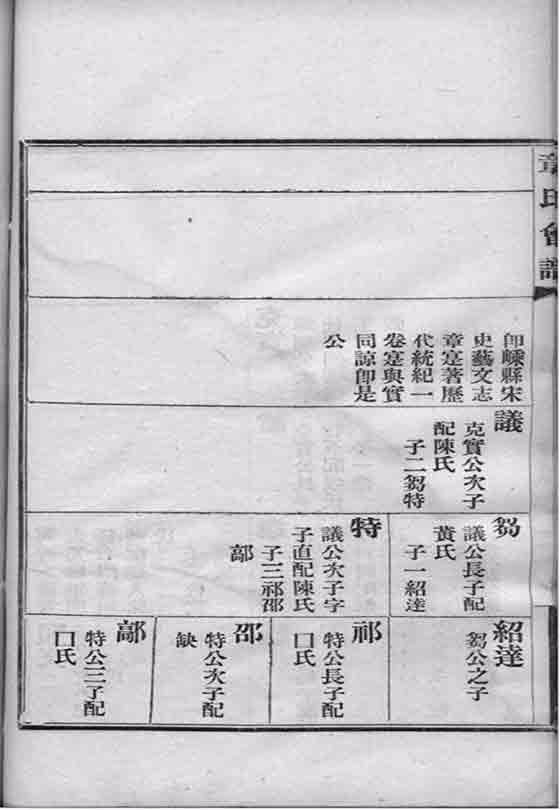 章氏會譜
即嵊縣宋
史藝文志
章寔著歷
代統紀一
卷寔與實
同諒即是
公
議
克實公次子
配陳氏
子二芻特
芻
議公長子配
黃氏
子一紹達
特
議公次子字
子直配陳氏
子三祁邵
鄗
紹達
芻公之子
祁
特公長子配
口氏
邵
特公次子配
缺
鄗
特公三子配
口氏